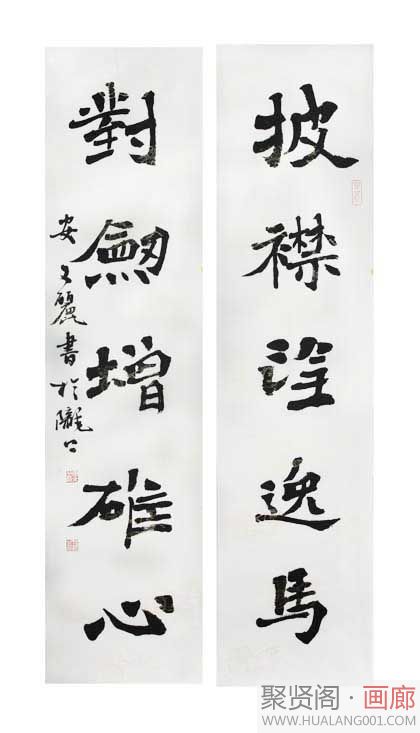 披襟詮逸馬
對劍增雄心
安文麗書於隴上
聚贤阁·画廊
WWW.HUALANG001.COM